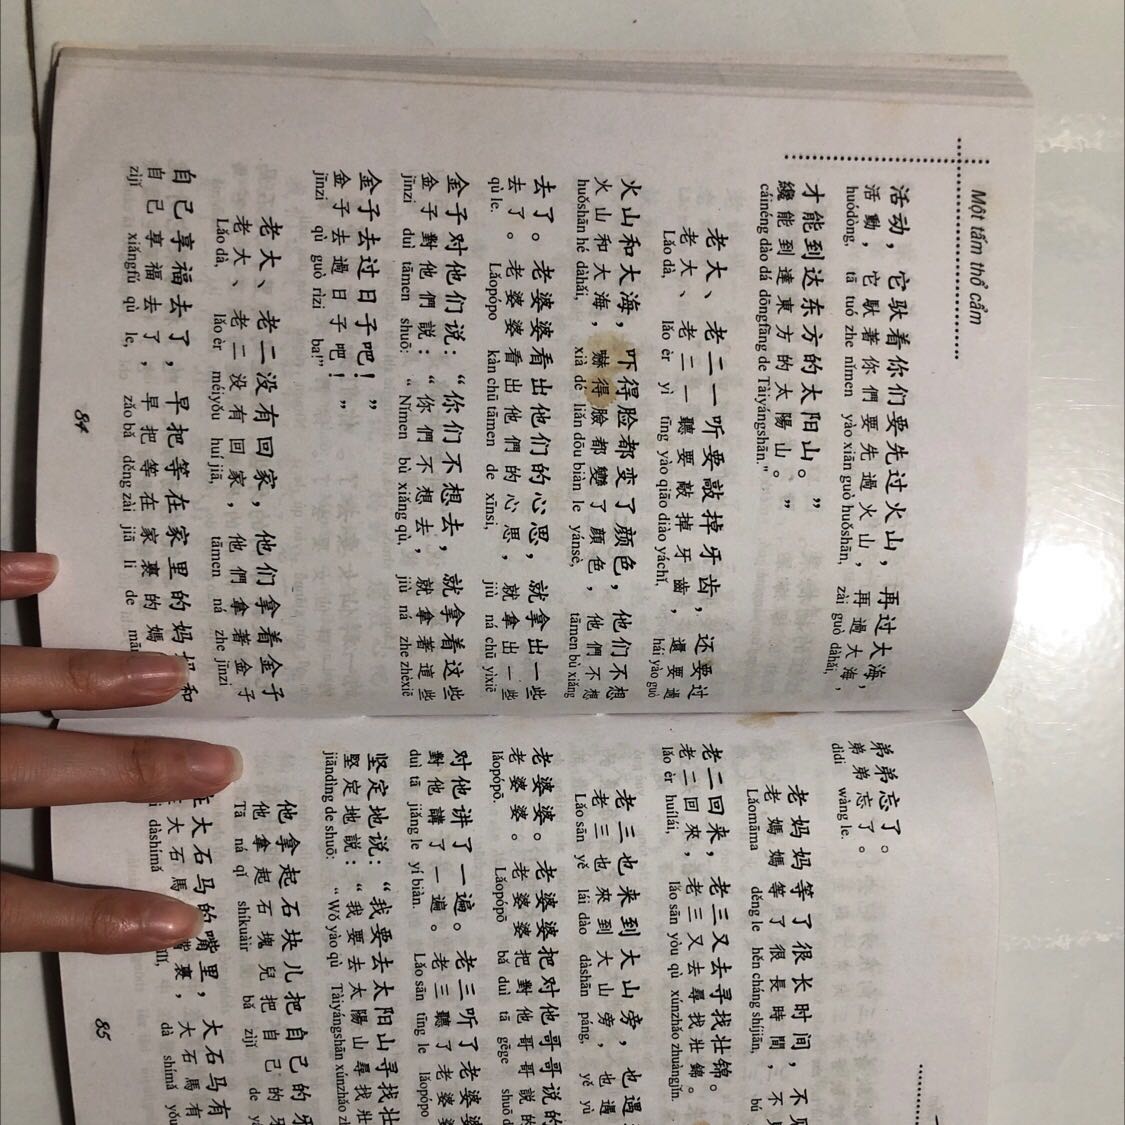 Một tấm thổ cẩm
活动，它驮着你们要先过火山，再过大海，
活動，它馱著你們要先過火山，再過大海，
huódong, tā tuó zhe nǐmen yào xiān guò huǒshān, zài guò dàhǎi,
才能到达东方的太阳山。”
纔能到達東方的太陽山。”
cáinéng dào dá dōngfāng de Tàiyángshān."
老大、老二一听要敲掉牙齿，还要过
老大、老二一聽要敲掉牙齒，還要過
Lǎo dà, lǎo èr yì tīng yào qiāo diào yáchǐ, hái yào guò
火山和大海，吓得脸都变了颜色，他们不想
火山和大海，嚇得臉都變了顏色，他們不想
huǒshān hé dàhǎi, xià dé liǎn dōu biàn le yánsè, tāmen bù xiǎng
去了。老婆婆看出他们的心思，就拿出一些
去了。老婆婆看出他們的心思，就拿出一些
qù le. Lǎopópo kàn chū tāmen de xīnsi, jiù ná chū yìxiē
金子对他们说：“你们不想去，就拿着这些
金子對他們說：“你們不想去，就拿著這些
jīnzi duì tāmen shuō: “Nǐmen bù xiǎng qù, jiù ná zhe zhèxiē
金子去过日子吧！”
金子去過日子吧！”
jīnzi qù guò rìzi ba!"
老大、老二没有回家，他们拿着金子
老大、老二没有回家，他們拿著金子
Lǎo dà, lǎo èr méiyǒu huí jiā, tāmen ná zhe jīnzi
自己享福去了，早把等在家里的妈妈和
自己享福去了，早把等在家裏的媽
zìjǐ xiǎngfú qù le, zǎo bǎ děng zài jiā lǐ de mā
84
弟弟忘了。
弟弟忘了。
dìdi wàng le.
老妈妈等了很长时间，不见
老媽媽等了很長時間，不
Lǎomāma děng le hěn cháng shíjiān, bú
老二回来，老三又去寻找壮锦。
老二回來，老三又去尋找壯錦。
lǎo èr huílái, lǎo sān yòu qù xúnzhǎo zhuàngjǐn.
老三也来到大山旁，也遇
老三也來到大山旁，也遇
Lǎo sān yě lái dào dàshān páng, yě yù
老婆婆。老婆婆把对他哥哥说的
老婆婆。老婆婆把對他哥哥說的
lǎopópō. Lǎopópō bǎ duì tā gēge shuō
对他讲了一遍。老三听了老婆婆
對他講了一遍。老三聽了老婆婆
duì tā jiǎng le yí biàn. Lǎo sān tīng le lǎopópo
坚定地说：“我要去太阳山寻找壮
堅定地説：“我要去太陽山尋找壯
jiāndìng de shuō: “Wǒ yào qù Tàiyángshān xúnzhǎo
他拿起石块儿把自己的牙
他拿起石塊兒把自己的牙
Tā ná qǐ shíkuàir bǎ zìjǐ de
在大石马的嘴里，大石马有
大石馬 嘴裏，大石馬有
dàshímǎ dà shímǎ yǒu
85